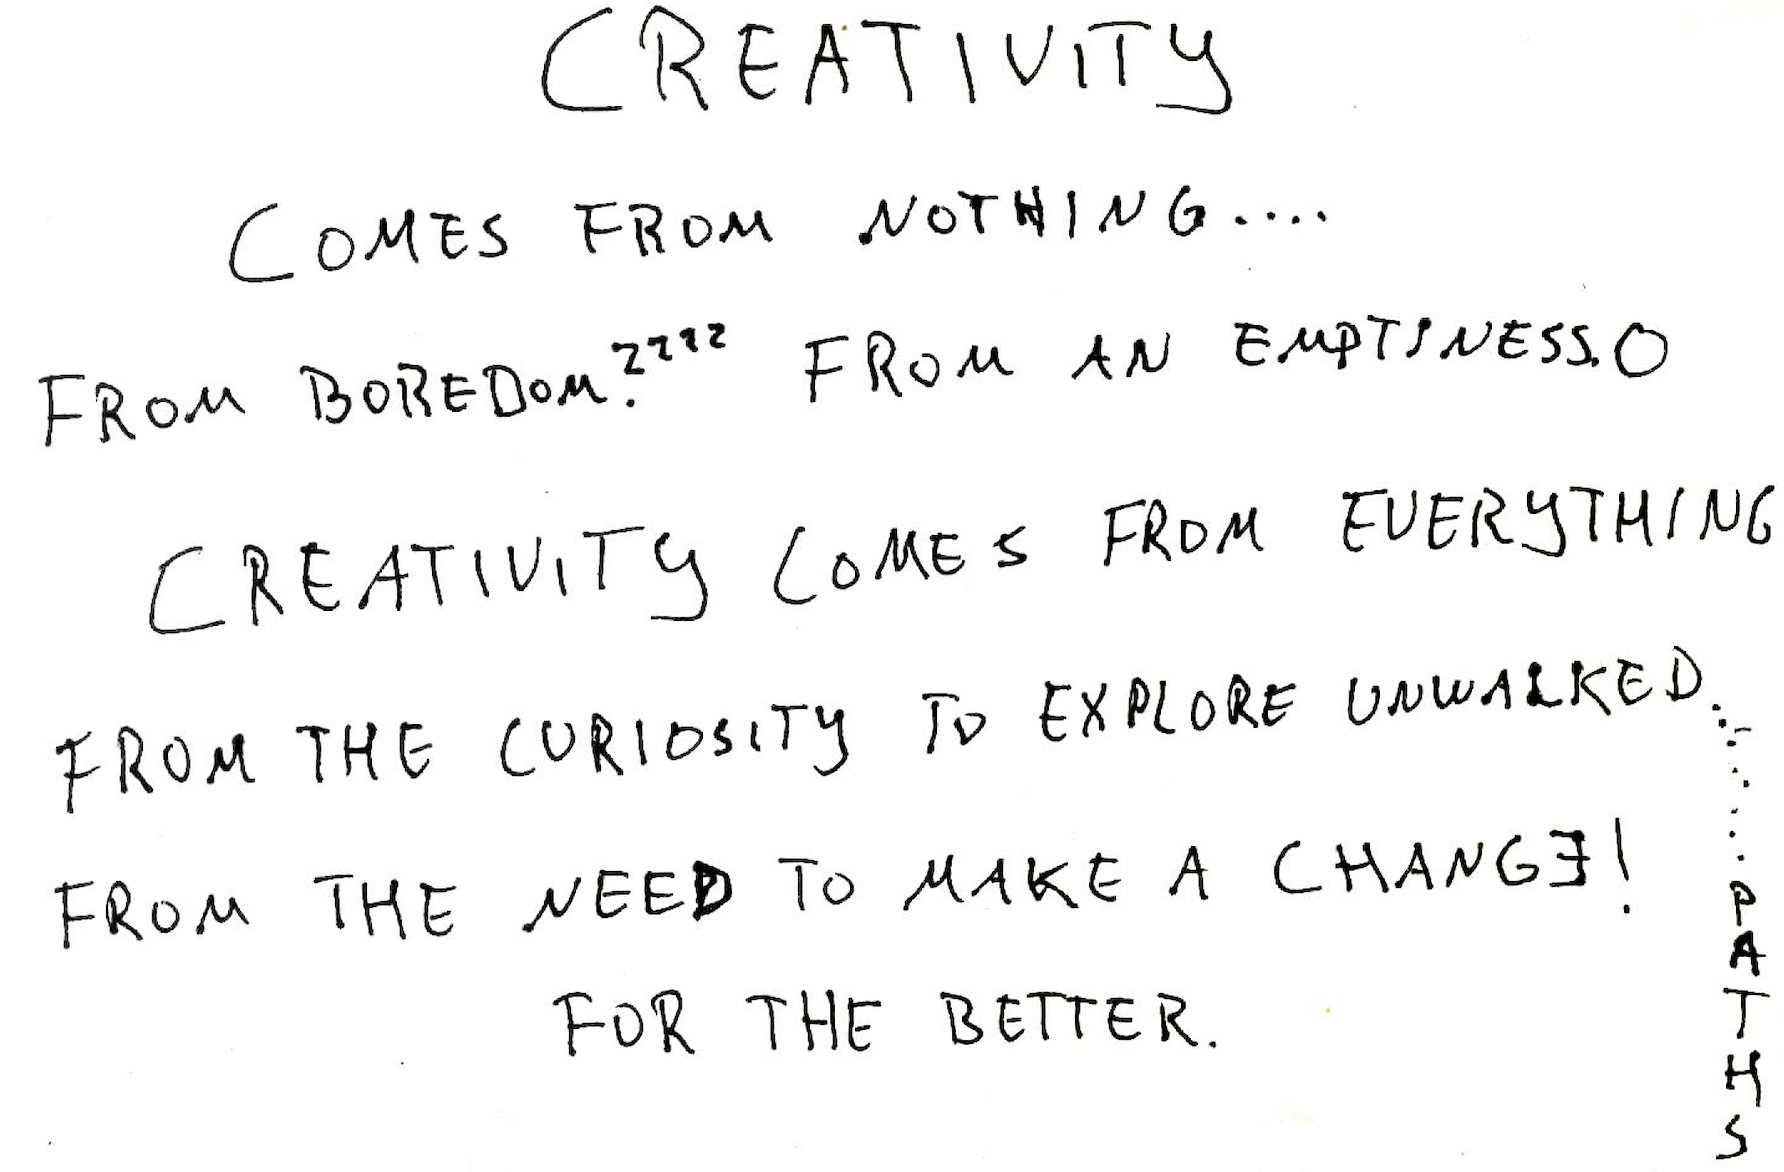 CREATIVITY
COMES FROM NOTHING....
FROM BOREDOM.zzzz FROM AN EMPTINESS.O
CREATIVITY COMES FROM EVERYTHING
FROM THE CURIOSITY TO EXPLORE UNWALKED..........
FROM THE NEED TO MAKE A CHANGƎ!
FOR THE BETTER.
PATHS